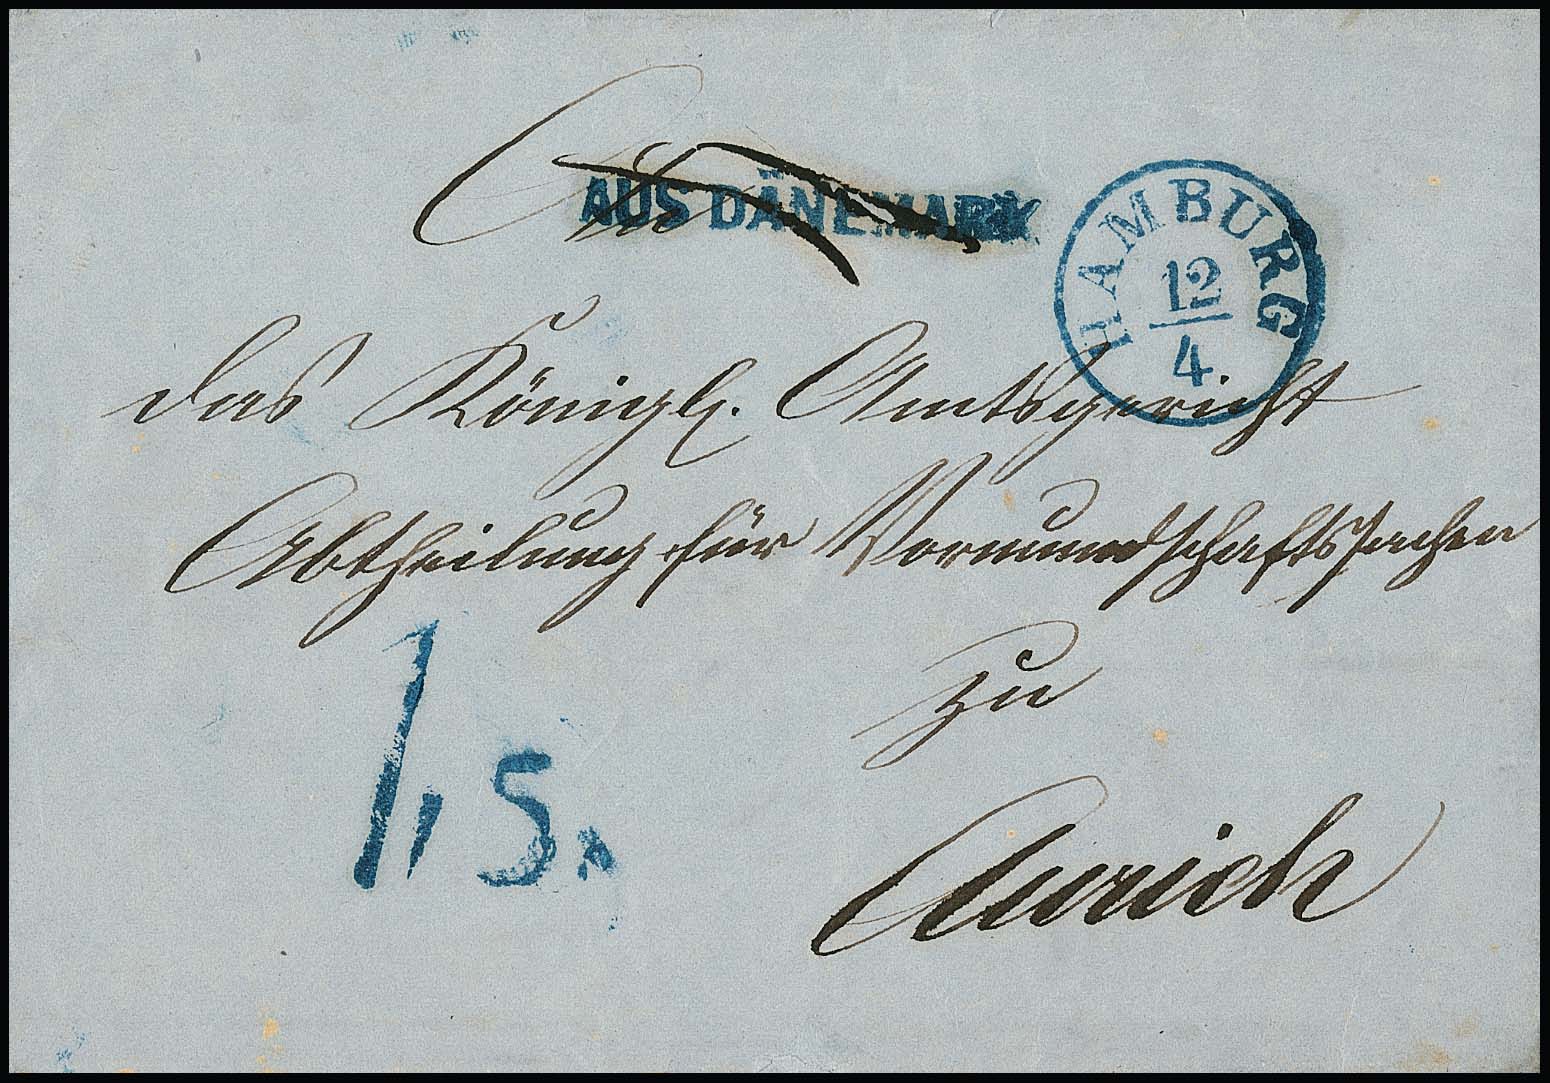 An
AUS DÄNEMARK
HAMBURG
12
4.
das Königl. Amtsgericht
Abtheilung für Vormundschaftssachen
zu
Aurich
1, 5.